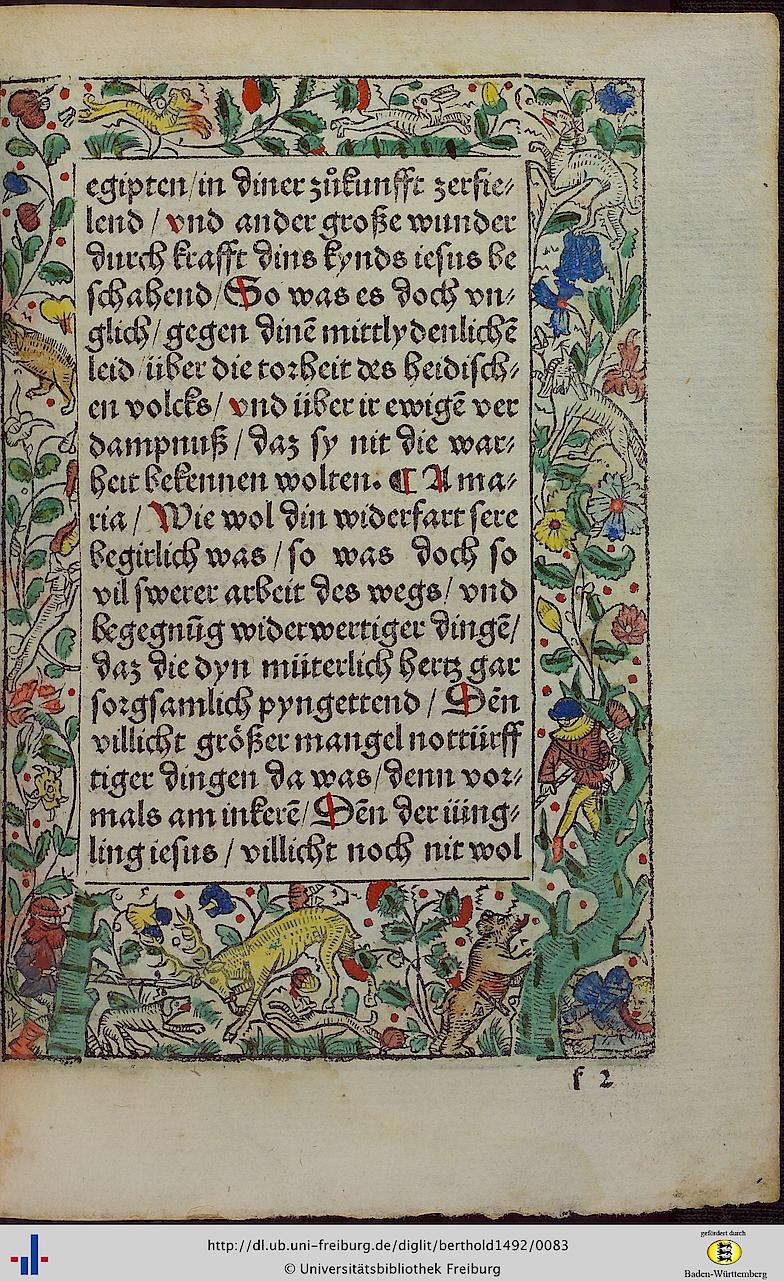 egipten/in diner zůkunfft zerfie⸗
lend / vnd ander große wunder
durch krafft dins kynds iesus be
schahend/So was es doch vn⸗
glich/gegen dinē mittlydenlichē
leid/über die torheit des heidisch⸗
en volcks/vnd über ir ewigē ver
dampnuß/daz sy nit die war⸗
heit bekennen wolten. ¶ A ma⸗
ria / Wie wol din widerfart sere
begirlich was / so was doch so
vil swerer arbeit des wegs/ vnd
begegnūg widerwertiger dingē/
daz die dyn müterlich hertz gar
sorgsamlich pyngettend / Dēn
villicht größer mangel nottürff
tiger dingen da was/denn vor⸗
mals am inkerē/Dēn der iüng⸗
ling iesus / villicht noch nit wol
f 2
http://dl.ub.uni-freiburg.de/diglit/berthold1492/0083
© Universitätsbibliothek Freiburg
gefördert durch
Baden-Württemberg